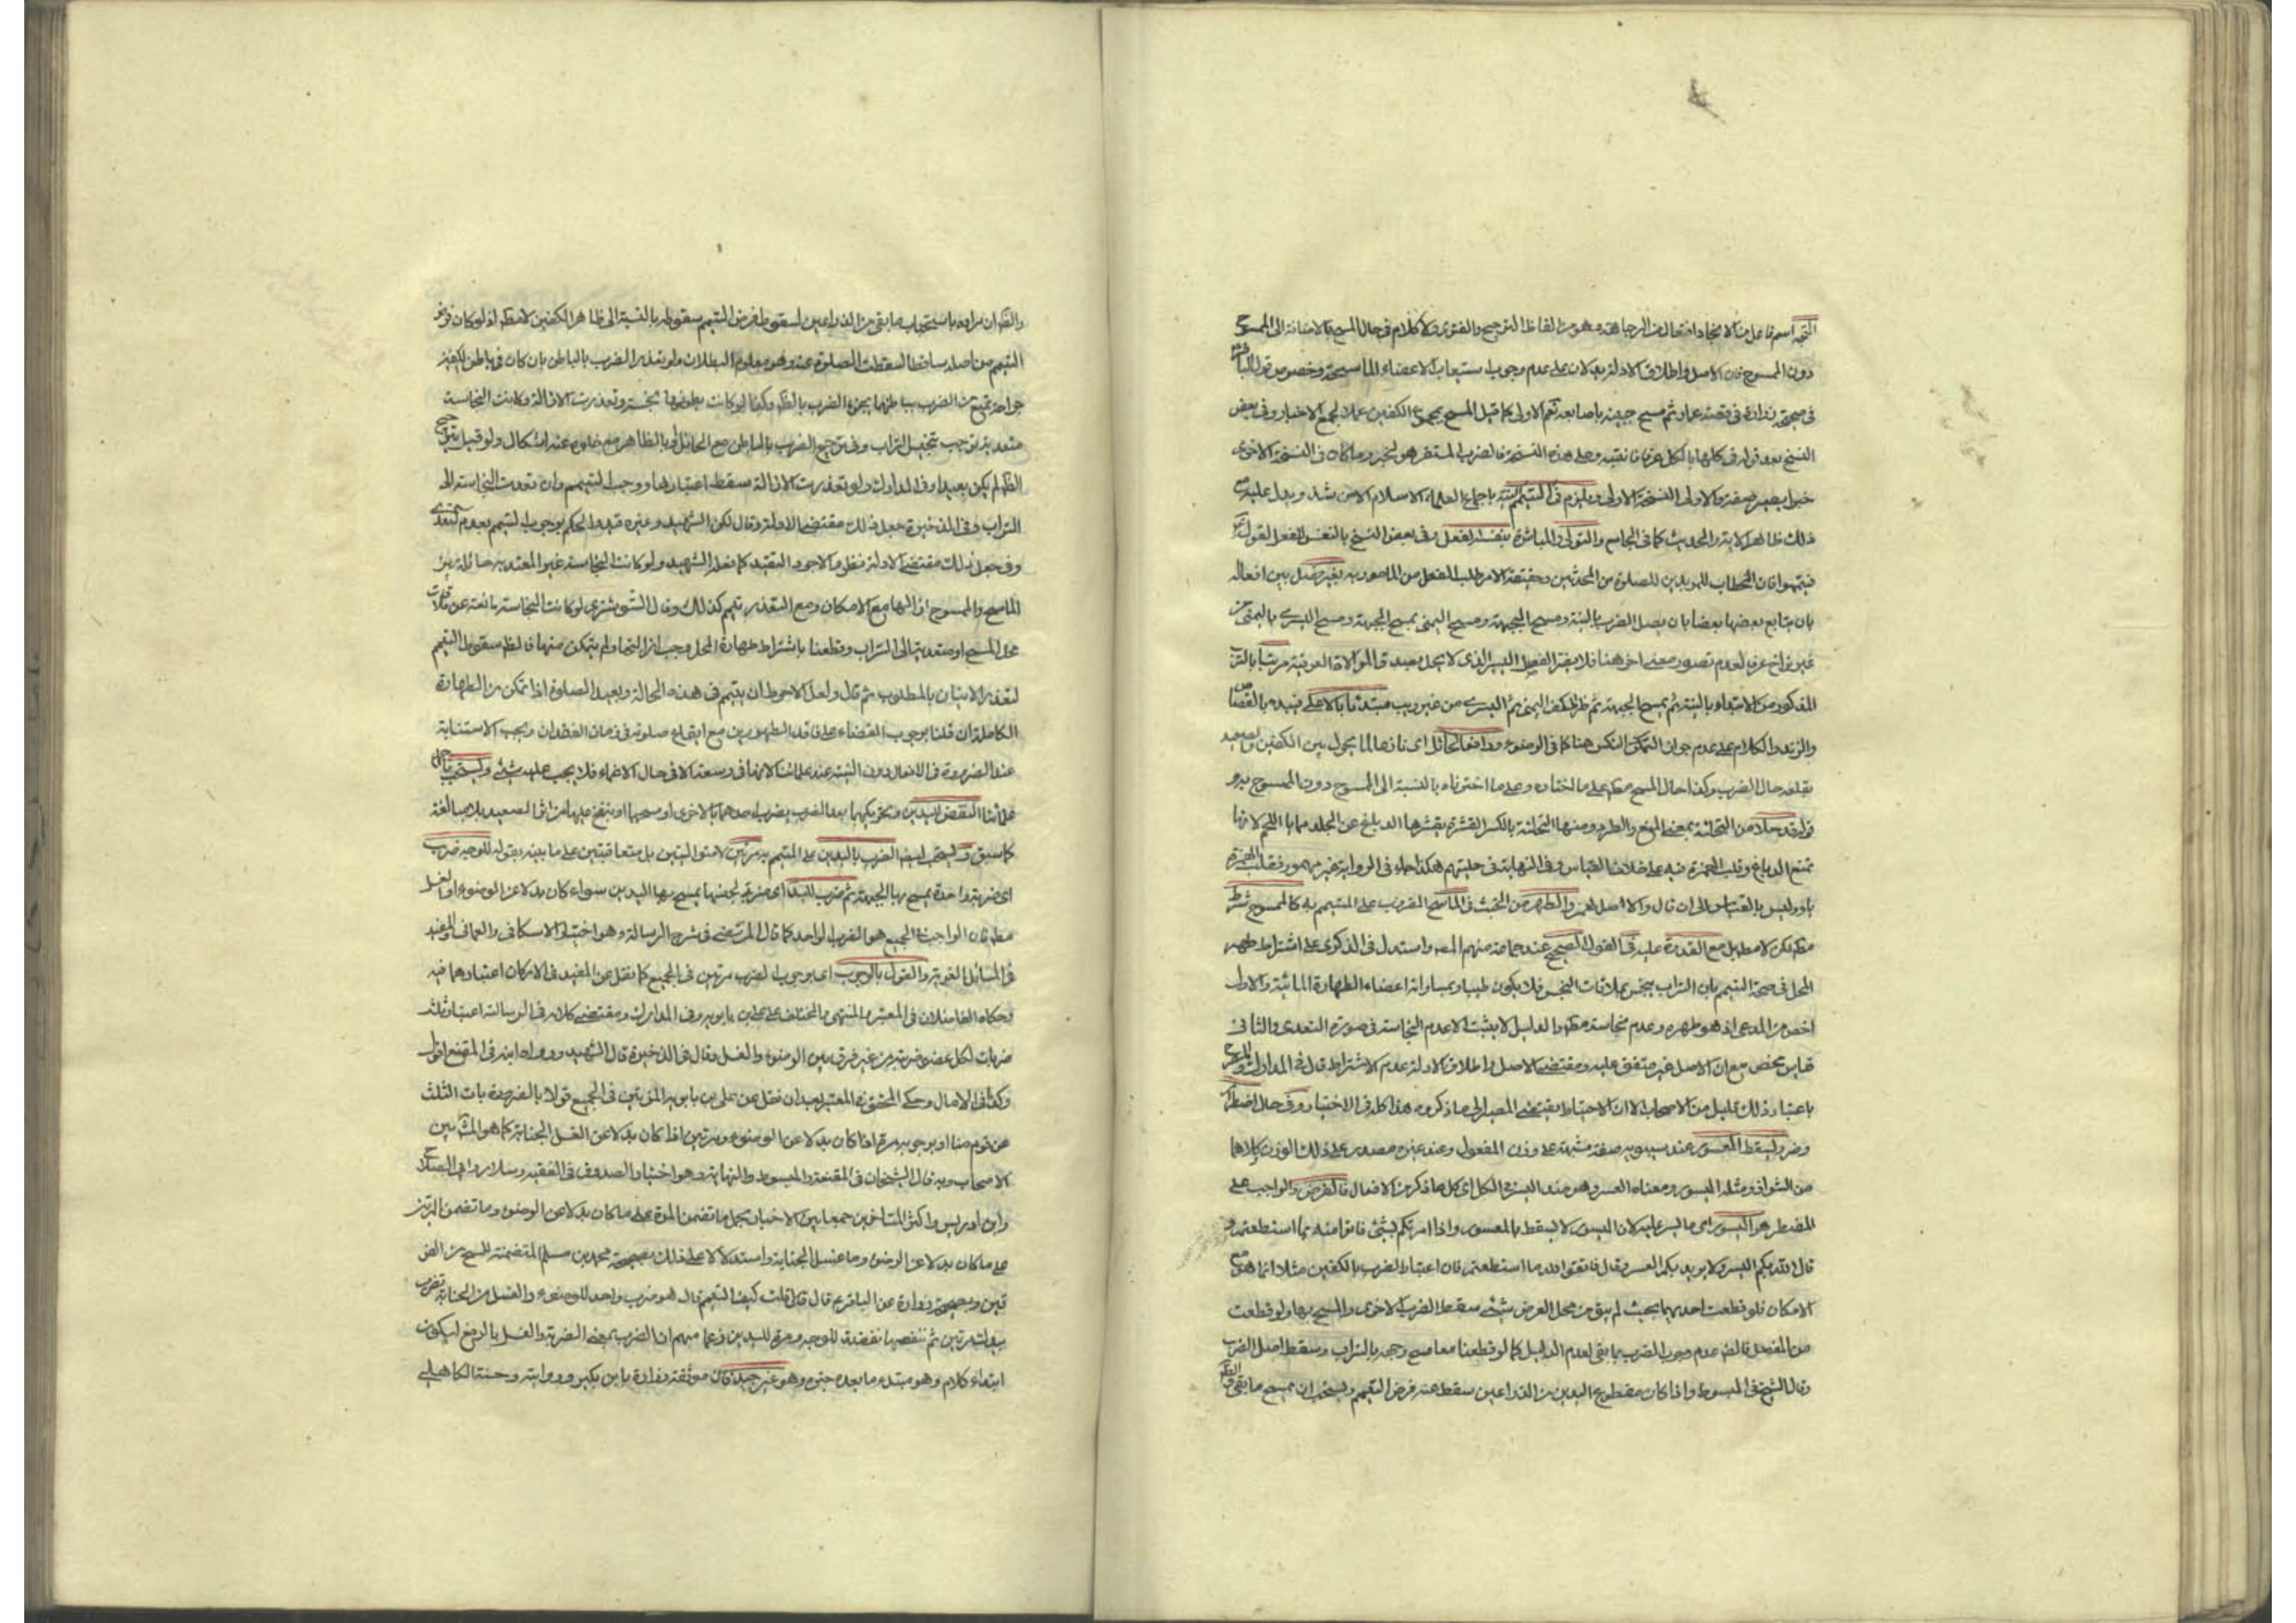 اسم فاعل من الاتجاه افتعال من الرجاء وهو من الفاظ الترجيح والفتوى والكلام في حال المسح بالاضافة الى الممسوح
دون الممسوح فان الاصل واطلاق الادلة يدلان على عدم وجوب استيعاب الاعضاء الماسحة وخصوص قول الباقر
في صحيحة زرارة في قصة عمار ثم مسح جبينه باصابعه نعم الاولى كما قيل المسح بمجموع الكفين عملا بجميع الاخبار وفي بعض
النسخ بعد قوله في كلها بالكل عرفا فانتبه وعلى هذه النسخة فالضرب المستقر هو الخبر وما كان في النسخة الاخرى
خبرا يصير صفة والاولى النسخة الاولى ويلزم في التيمم النية باجماع العلماء الاسلام الا من شذ ويدل عليه مع
ذلك ظاهر الاية والحديث كما في الجامع والتولي والمباشرة بنفسه الفعل وفي بعض النسخ بالنفس للفعل لقوله
فتيمموا فان الخطاب للمريدين للصلوة من المحدثين وحقيقة الامر طلب الفعل من المامور به بغير فصل بين افعاله
بان يتابع بعضها بعضا بان يصل الضرب بالنية ومسح الجبهة ومسح اليمنى بمسح الجبهة ومسح اليسرى باليمنى من
غير تراخ عرفي لعدم تصور معنى اخر هنا فلا يضر الفصل اليسير الذي لا يخل بصدق الموالاة العرفية مرتبا بالترتيب
المذكور من الابتداء بالنية ثم بمسح الجبهة ثم ظهر الكف اليمنى ثم اليسرى من غير ريب مبتدئا بالاعلى فيبدء بالقصاص
والزند والكلام على عدم جواز النكس هنا كما في الوضوء ورافعا لحائل اي نازعا لما يحول بين الكفين والصعيد
يقلعه حال الضرب وكذا حال المسح مطلقا على ما اختاره وعلى ما اخترناه بالنسبة الى الممسوح دون الممسوح به و
قوله قد حلا من التحلئة بمعنى المنع والطرد ومنها التحلئة بالكسر القشرة يقشرها الدباغ عن الجلد مما يلي اللحم لانها
تمنع الدباغ وقلب الهمزة فيه على خلاف القياس وفي النهاية في حليتهم هكذا جاء في الرواية غير مهموز فقلب الهمزة
ياء وليس بالقياس الى ان قال والاصل الهمز والطهر من الخبث في الماسح المضروب على المتيمم به كالممسوح شرط
لكن لا مطلقا بل مع القدرة عليه في القول الصحيح عند جماعة منهم المصنف واستدل في الذكرى على اشتراط طهر
المحل في صحة التيمم بان التراب ينجس بملاقات النجس فلا يكون طيبا وبمساواته اعضاء الطهارة المائية والاول
اخص من المدعى اذ هو طهره وعدم نجاسته مطلقا والدليل لا يثبت الا عدم النجاسة في صورة التعدى والثاني
قياس محض مع ان الاصل غير متفق عليه ومقتضى الاصل واطلاق الادلة عدم الاشتراط قال في المدارك والمصرح
باعتبار ذلك قليل من الاصحاب الا ان الاحتياط يقتضي المصير الى ما ذكروه هذا كله في الاختيار وفي حال اضطرار
وضر وليسقط المعسور عند سيبويه صفة مشبهة على وزن المفعول وعند غيره مصدر على ذلك الوزن وكلاهما
من الشواذ ومثله الميسور ومعناه العسر وهو ضد اليسر والكل اي كل ما ذكر من الافعال فالفرض والواجب على
المضطر هو الميسور اي ما يسر عليه لان الميسور لا يسقط بالمعسور واذا امرتكم بشيء فاتوا منه بما استطعتم و
قال الله بكم اليسر ولا يريد بكم العسر وقال فاتقوا الله ما استطعتم فان اعتبار الضرب بالكفين مثلا انما هو مع
الامكان فلو قطعت احديهما بحيث لم يبق من محل الفرض شيء سقط الضرب بالاخرى والمسح بها ولو قطعت
من المفصل فالظاهر عدم وجوب الضرب بما بقي لعدم الدليل كما لو قطعتا معا مسح وجهه بالتراب وسقط اصل الضرب
وقال الشيخ في المبسوط واذا كان مقطوع اليدين من الذراعين سقط عنه فرض التيمم ويستحب ان يمسح ما بقي
والظ ان مراده باستحباب ما بقي من الذراعين لسقوط فرض التيمم سقوطه بالنسبة الى ظاهر الكفين لا مطلقا اذ لو كان فرض
التيمم من اصله ساقطا لسقطت الصلوة عنه وهو معلوم البطلان ولو تعذر الضرب بالباطن بان كان في باطن الكفين
جراحة تمنع من الضرب بباطنهما يجزء الضرب بالظهر وكذا لو كانت بطونها نجسة وتعذرت الازالة وكانت النجاسة
متعدية توجب تنجيس التراب وفي ترجيح الضرب بالباطن مع الحائل او بالظاهر مع خلوه عنه اشكال ولو قيل بترجيح
الظهر لم يكن بعيدا وفي المدارك ولو تعذرت الازالة سقط اعتبارها ووجب التيمم وان تعدت النجاسة الى
التراب وفي الذخيرة جعل ذلك مقتضى الادلة وقال لكن الشهيد وغيره قيدوا الحكم بوجوب التيمم بعدم التعدى
وفي جعل ذلك مقتضى الادلة نظر والاجود التقييد كما فعله الشهيد ولو كانت النجاسة غير المعتدية حائلة بين
الماسح والممسوح ازالها مع الامكان ومع التعذر تيمم كذلك وقال التوشتري لو كانت النجاسة مانعة عن ملاقات
محل المسح او متعدية الى التراب وقطعنا باشتراط طهارة المحل وجب ازالتها ولو لم يتمكن منها فالظ سقوط التيمم
لتعذر الاتيان بالمطلوب ثم قال ولعل الاحوط ان يتيمم في هذه الحالة ويعيد الصلوة اذا تمكن من الطهارة
الكاملة ان قلنا بوجوب القضاء على فاقد الطهورين مع ايقاع صلوته في زمان الفقدان ويجب الاستنابة
عند الضرورة في الافعال دون النية عند علمائنا لانها في وسعه الا في حال الاغماء فلا يجب عليه شيء ويستحب
علمائنا النفض لليدين وتحريكهما بعد الضرب بضرب احدهما بالاخرى او مسحها او ينفخ عليها من اثر الصعيد بلا مبالغة
كما سبق ويستحب ايضا الضرب باليدين على المتيمم به مرتين لا متواليتين بل متعاقبتين على ما بينه بقوله للوجه ضرب
اي ضربة واحدة يمسح بها الجبهة ثم ضرب لليد اي ضربة لبعضها يمسح بها اليدين سواء كان بدلا عن الوضوء او الغسل
فان الواجب في الجميع هو الضرب الواحد كما قال المرتضى في شرح الرسالة وهو اختيار الاسكافي والعماني والمفيد
في المسائل الغرية والقول بالوجوب اي بوجوب الضرب مرتين في الجميع كما نقل عن المفيد في الاركان اعتبارهما فيه
وحكاه الفاضلان في المعتبر والمنتهى والمختلف على علي بن بابويه وفي المدارك ومقتضى كلامه في الرسالة اعتبار ثلث
ضربات لكل عضو ضربة من غير فرق بين الوضوء والغسل وقال في الذخيرة قال الشهيد ورواه ابنه في المقنع اقول
وكذا في الامال وحكى المحقق في المعتبر بعد ان نقل عن علي بن بابويه المرتين في الجميع قولا بالضربات الثلث
عن قوم منا او بوجوبه مرة اذا كان بدلا عن الوضوء ومرتين اذا كان بدلا عن الغسل الجنابة كما هو المش بين
الاصحاب وبه قال الشيخان في المقنعة والمبسوط والنهاية وهو اختيار الصدوق في الفقيه وسلار وابي الصلاح
وابن ادريس واكثر المتاخرين جمعا بين الاخبار بحمل ما تضمن المرة على ما كان بدلا عن الوضوء وما تضمن المرتين
على ما كان بدلا عن الوضوء وما غسل الجنابة واستدلالا على ذلك بصحيحة محمد بن مسلم المتضمنة للمسح من المرفقين
وبصحيحة زرارة عن الباقر قال قلت كيف التيمم قال هو ضرب واحد للوضوء والغسل من الجنابة تضرب
بيديك مرتين ثم تنفضهما نفضة للوجه ومرة لليدين زعما منهم ان الضرب بمعنى الضربة والغسل بالرفع ليكون
ابتداء كلام وهو مبتدء ما بعده خبره وهو غير جيد فان موثقة زرارة بابن بكير وروايته وحسنة الكاهلي